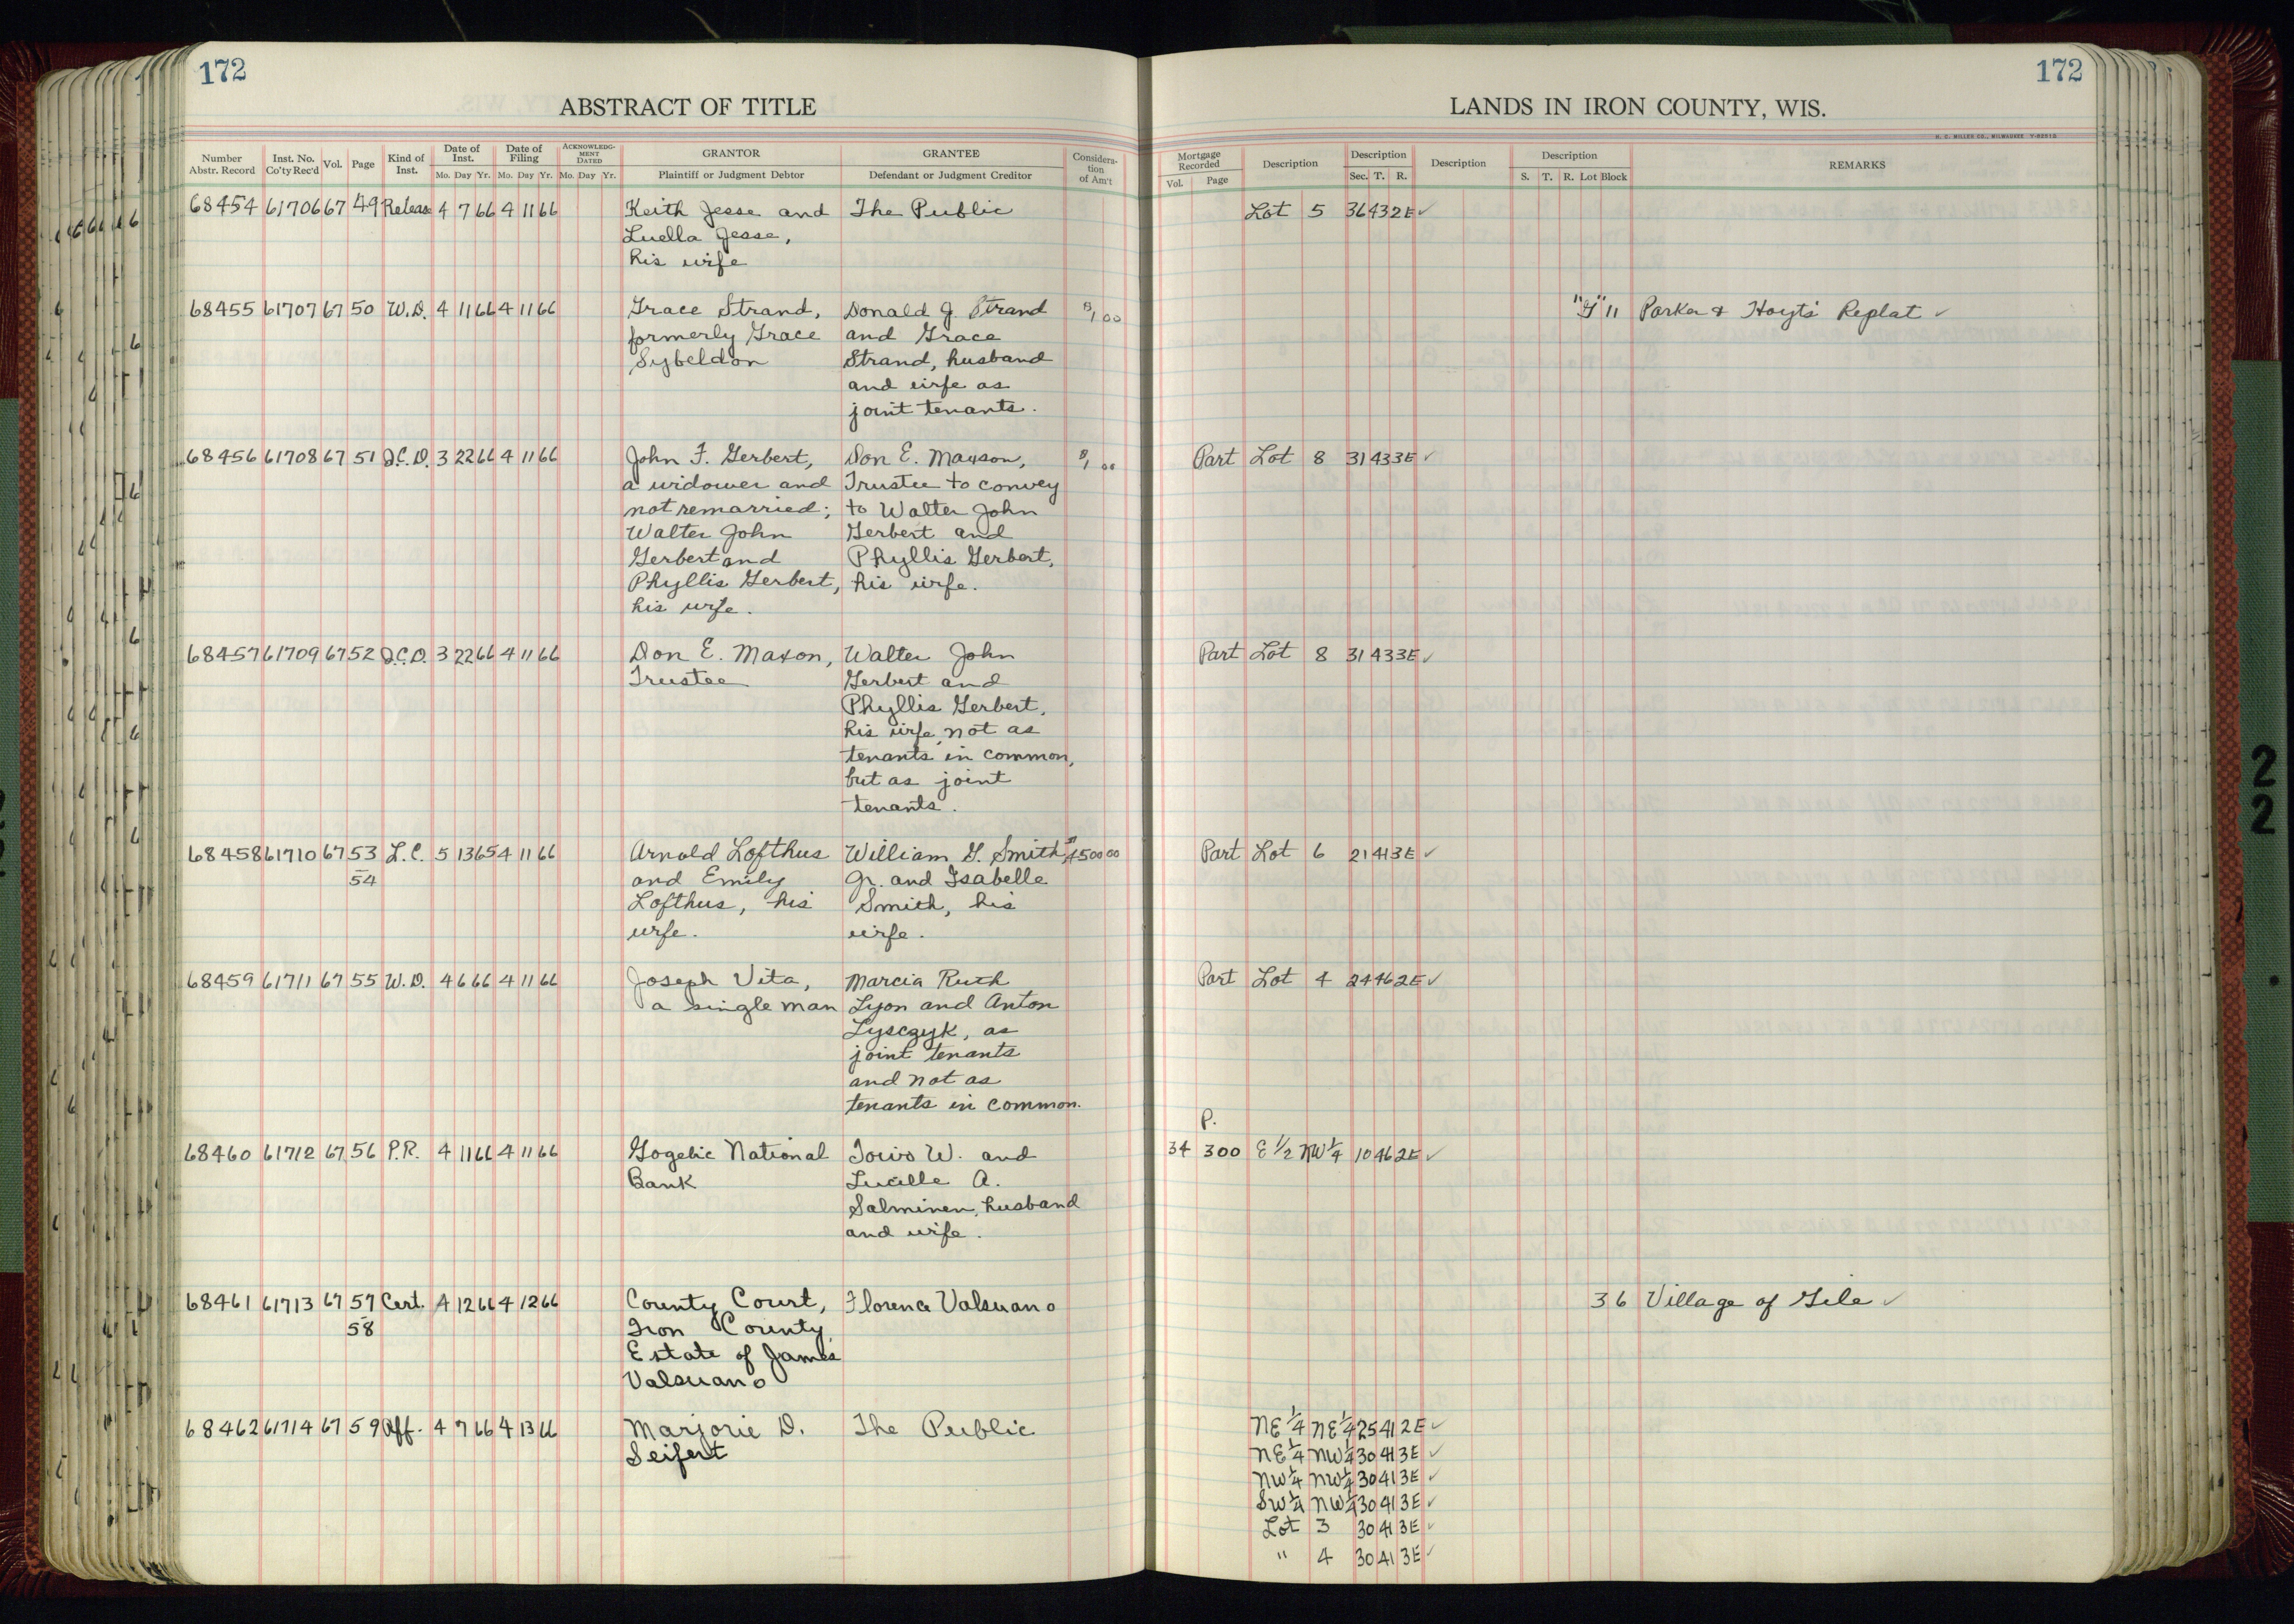 172
ABSTRACT OF TITLE
Number Abstr. Record Inst. No. Co'ty Rec'd Vol. Page Kind of Inst. Date of Inst. Mo. Day Yr. Date of Filing Mo. Day Yr. ACKNOWLEDGMENT DATED Mo. Day Yr. GRANTOR Plaintiff or Judgment Debtor GRANTEE Defendant or Judgment Creditor Consideration of Am't
68454 61706 67 49 Release 4 7 66 4 11 66 Keith Jesse and The Public
Luella Jesse,
his wife
68455 61707 67 50 W.D. 4 11 66 4 11 66 Grace Strand, Donald J Strand $1.00
formerly Grace and Grace
Sybeldon Strand, husband
and wife as
joint tenants.
68456 61708 67 51 Q.C.D. 3 22 66 4 11 66 John F. Gerbert, Don E. Maxson, $1.00
a widower and Trustee to convey
not remarried; to Walter John
Walter John Gerbert and
Gerbert and Phyllis Gerbert,
Phyllis Gerbert, his wife.
his wife.
68457 61709 67 52 Q.C.D. 3 22 66 4 11 66 Don E. Maxon, Walter John
Trustee Gerbert and
Phyllis Gerbert,
his wife, not as
tenants in common,
but as joint
tenants.
68458 61710 67 53 L.C. 5 13 65 4 11 66 Arnold Lofthus William G. Smith, $4500 00
54 and Emily Jr. and Isabelle
Lofthus, his Smith, his
wife. wife.
68459 61711 67 55 W.D. 4 6 66 4 11 66 Joseph Vita, Marcia Ruth
a single man Lyon and Anton
Lysczyk, as
joint tenants
and not as
tenants in common.
68460 61712 67 56 P.R. 4 11 66 4 11 66 Gogebic National Toivo W. and
Bank Lucille A.
Salminen, husband
and wife.
68461 61713 67 57 Cert. 4 12 66 4 12 66 County Court, Florence Valsuano
58 Iron County,
Estate of James
Valsuano
68462 61714 67 59 Aff. 4 7 66 4 13 66 Marjorie D. The Public
Seifert
172
LANDS IN IRON COUNTY, WIS.
H. C. MILLER CO., MILWAUKEE
Mortgage Recorded Vol. Page Description Description Sec. T. R. Description Description S. T. R. Lot Block REMARKS
Lot 5 36 43 2E ✓
"G" 11 Parker & Hoyts' Replat ✓
Part Lot 8 31 43 3E ✓
Part Lot 8 31 43 3E ✓
Part Lot 6 21 41 3E ✓
Part Lot 4 24 46 2E ✓
P.
34 300 E 1/2 NW 1/4 10 46 2E ✓
3 6 Village of Gile ✓
NE 1/4 NE 1/4 25 41 2E ✓
NE 1/4 NW 1/4 30 41 3E ✓
NW 1/4 NW 1/4 30 41 3E ✓
SW 1/4 NW 1/4 30 41 3E ✓
Lot 3 30 41 3E ✓
" 4 30 41 3E ✓